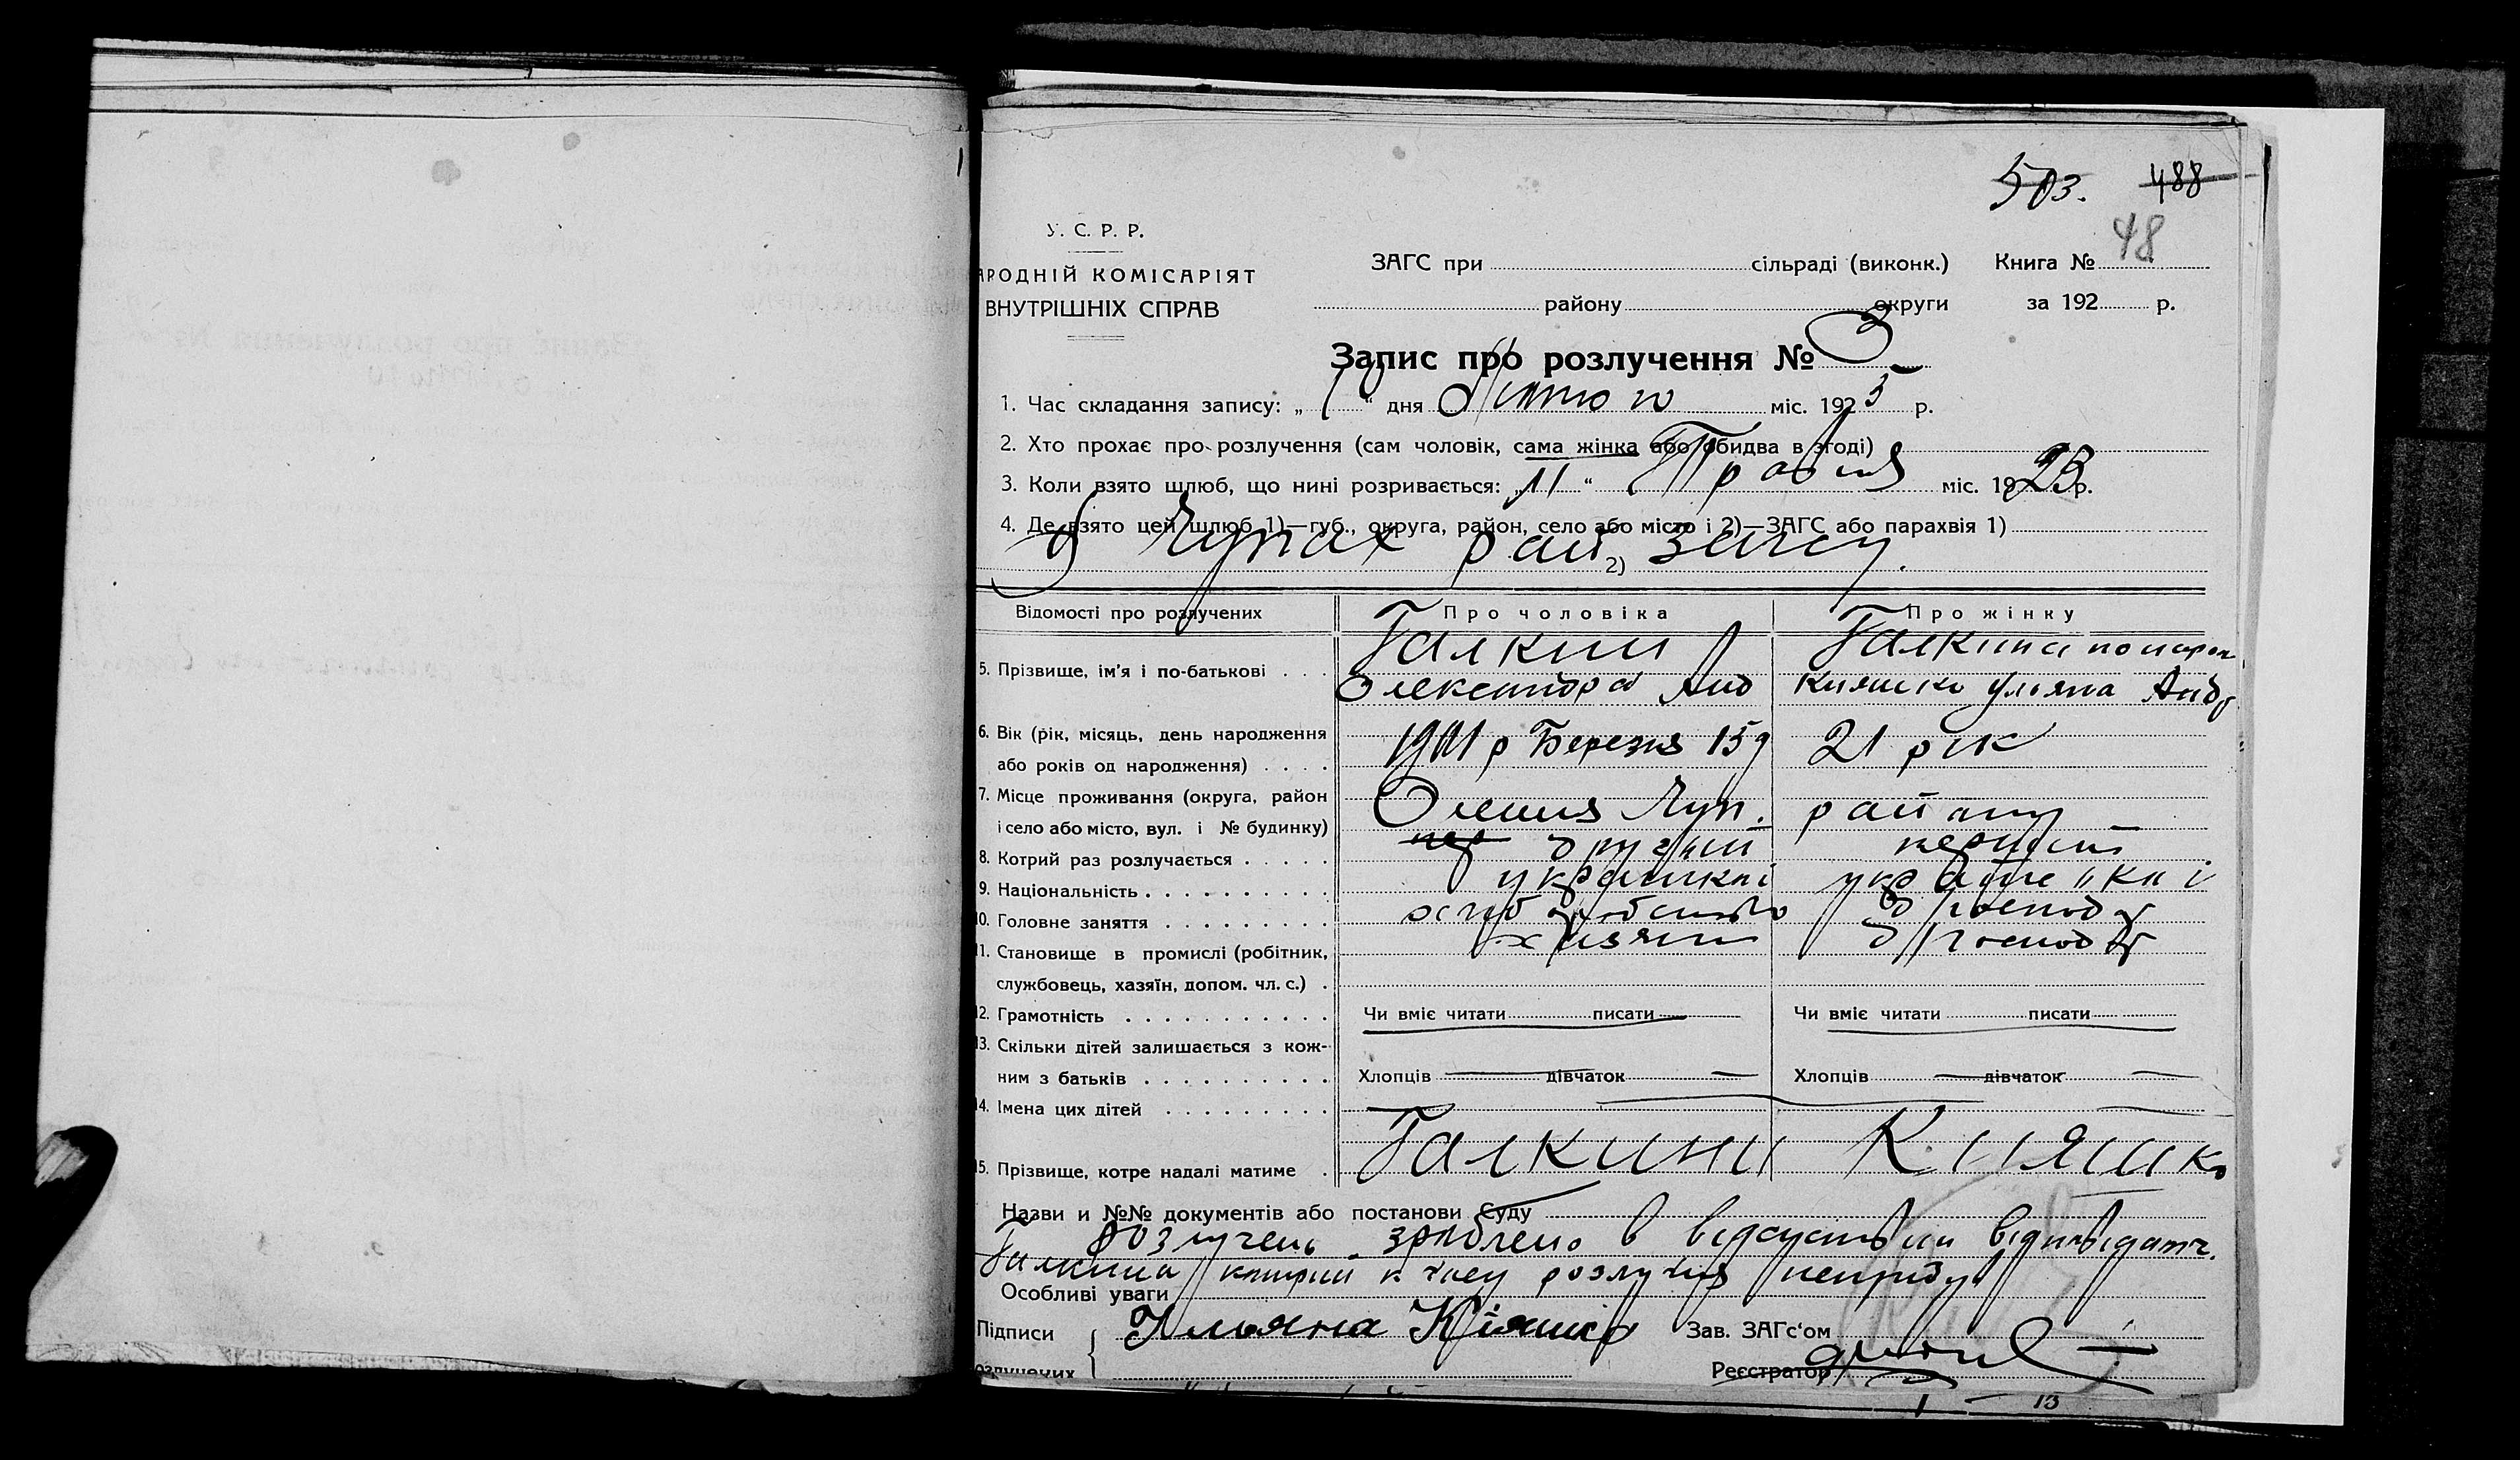 503. 488
48
У. С. Р. Р.
АРОДНІЙ КОМІСАРІЯТ
ВНУТРІШНІХ СПРАВ
ЗАГС при сільраді (виконк.) Книга №
району округи за 192 р.
Запис про розлучення № 3
1. Час складання запису: „10“ дня Лютого міс. 1925 р.
2. Хто прохає про розлучення (сам чоловік, сама жінка або обидва в згоді)
3. Коли взято шлюб, що нині розривається: „11“ Травня міс. 1923 р.
4. Де взято цей шлюб 1)—губ., округа, район, село або місто і 2)—ЗАГС або парахвія 1)
в Чупах рай 2) загсу.
Відомості про розлучених Про чоловіка Про жінку
5. Прізвище, ім'я і по-батькові Галкин Галкина
Олександра Анд Кияшко Ульяна Андр
6. Вік (рік, місяць, день народження 1901 р Березня 15 21 рік
або років од народження)
7. Місце проживання (округа, район Олешня Чуп. району
і село або місто, вул. і № будинку)
8. Котрий раз розлучається другий первий
9. Національність
10. Головне заняття хліборобство д/господ
11. Становище в промислі (робітник, хазяін д/господ
службовець, хазяїн, допом. чл. с.)
12. Грамотність Чи вміє читати писати Чи вміє читати писати
13. Скільки дітей залишається з кож-
ним з батьків Хлопців — дівчаток — Хлопців — дівчаток —
14. Імена цих дітей
15. Прізвище, котре надалі матиме Галкини Кияшко
Назви и №№ документів або постанови Суду
розлучень зроблено в відсуствии відповідатч.
Галкина котрий к часу розлучня неприбув
Особливі уваги
Підписи Ульяна Кіяшко Зав. ЗАГс'ом
озлучених Реєстратор
13